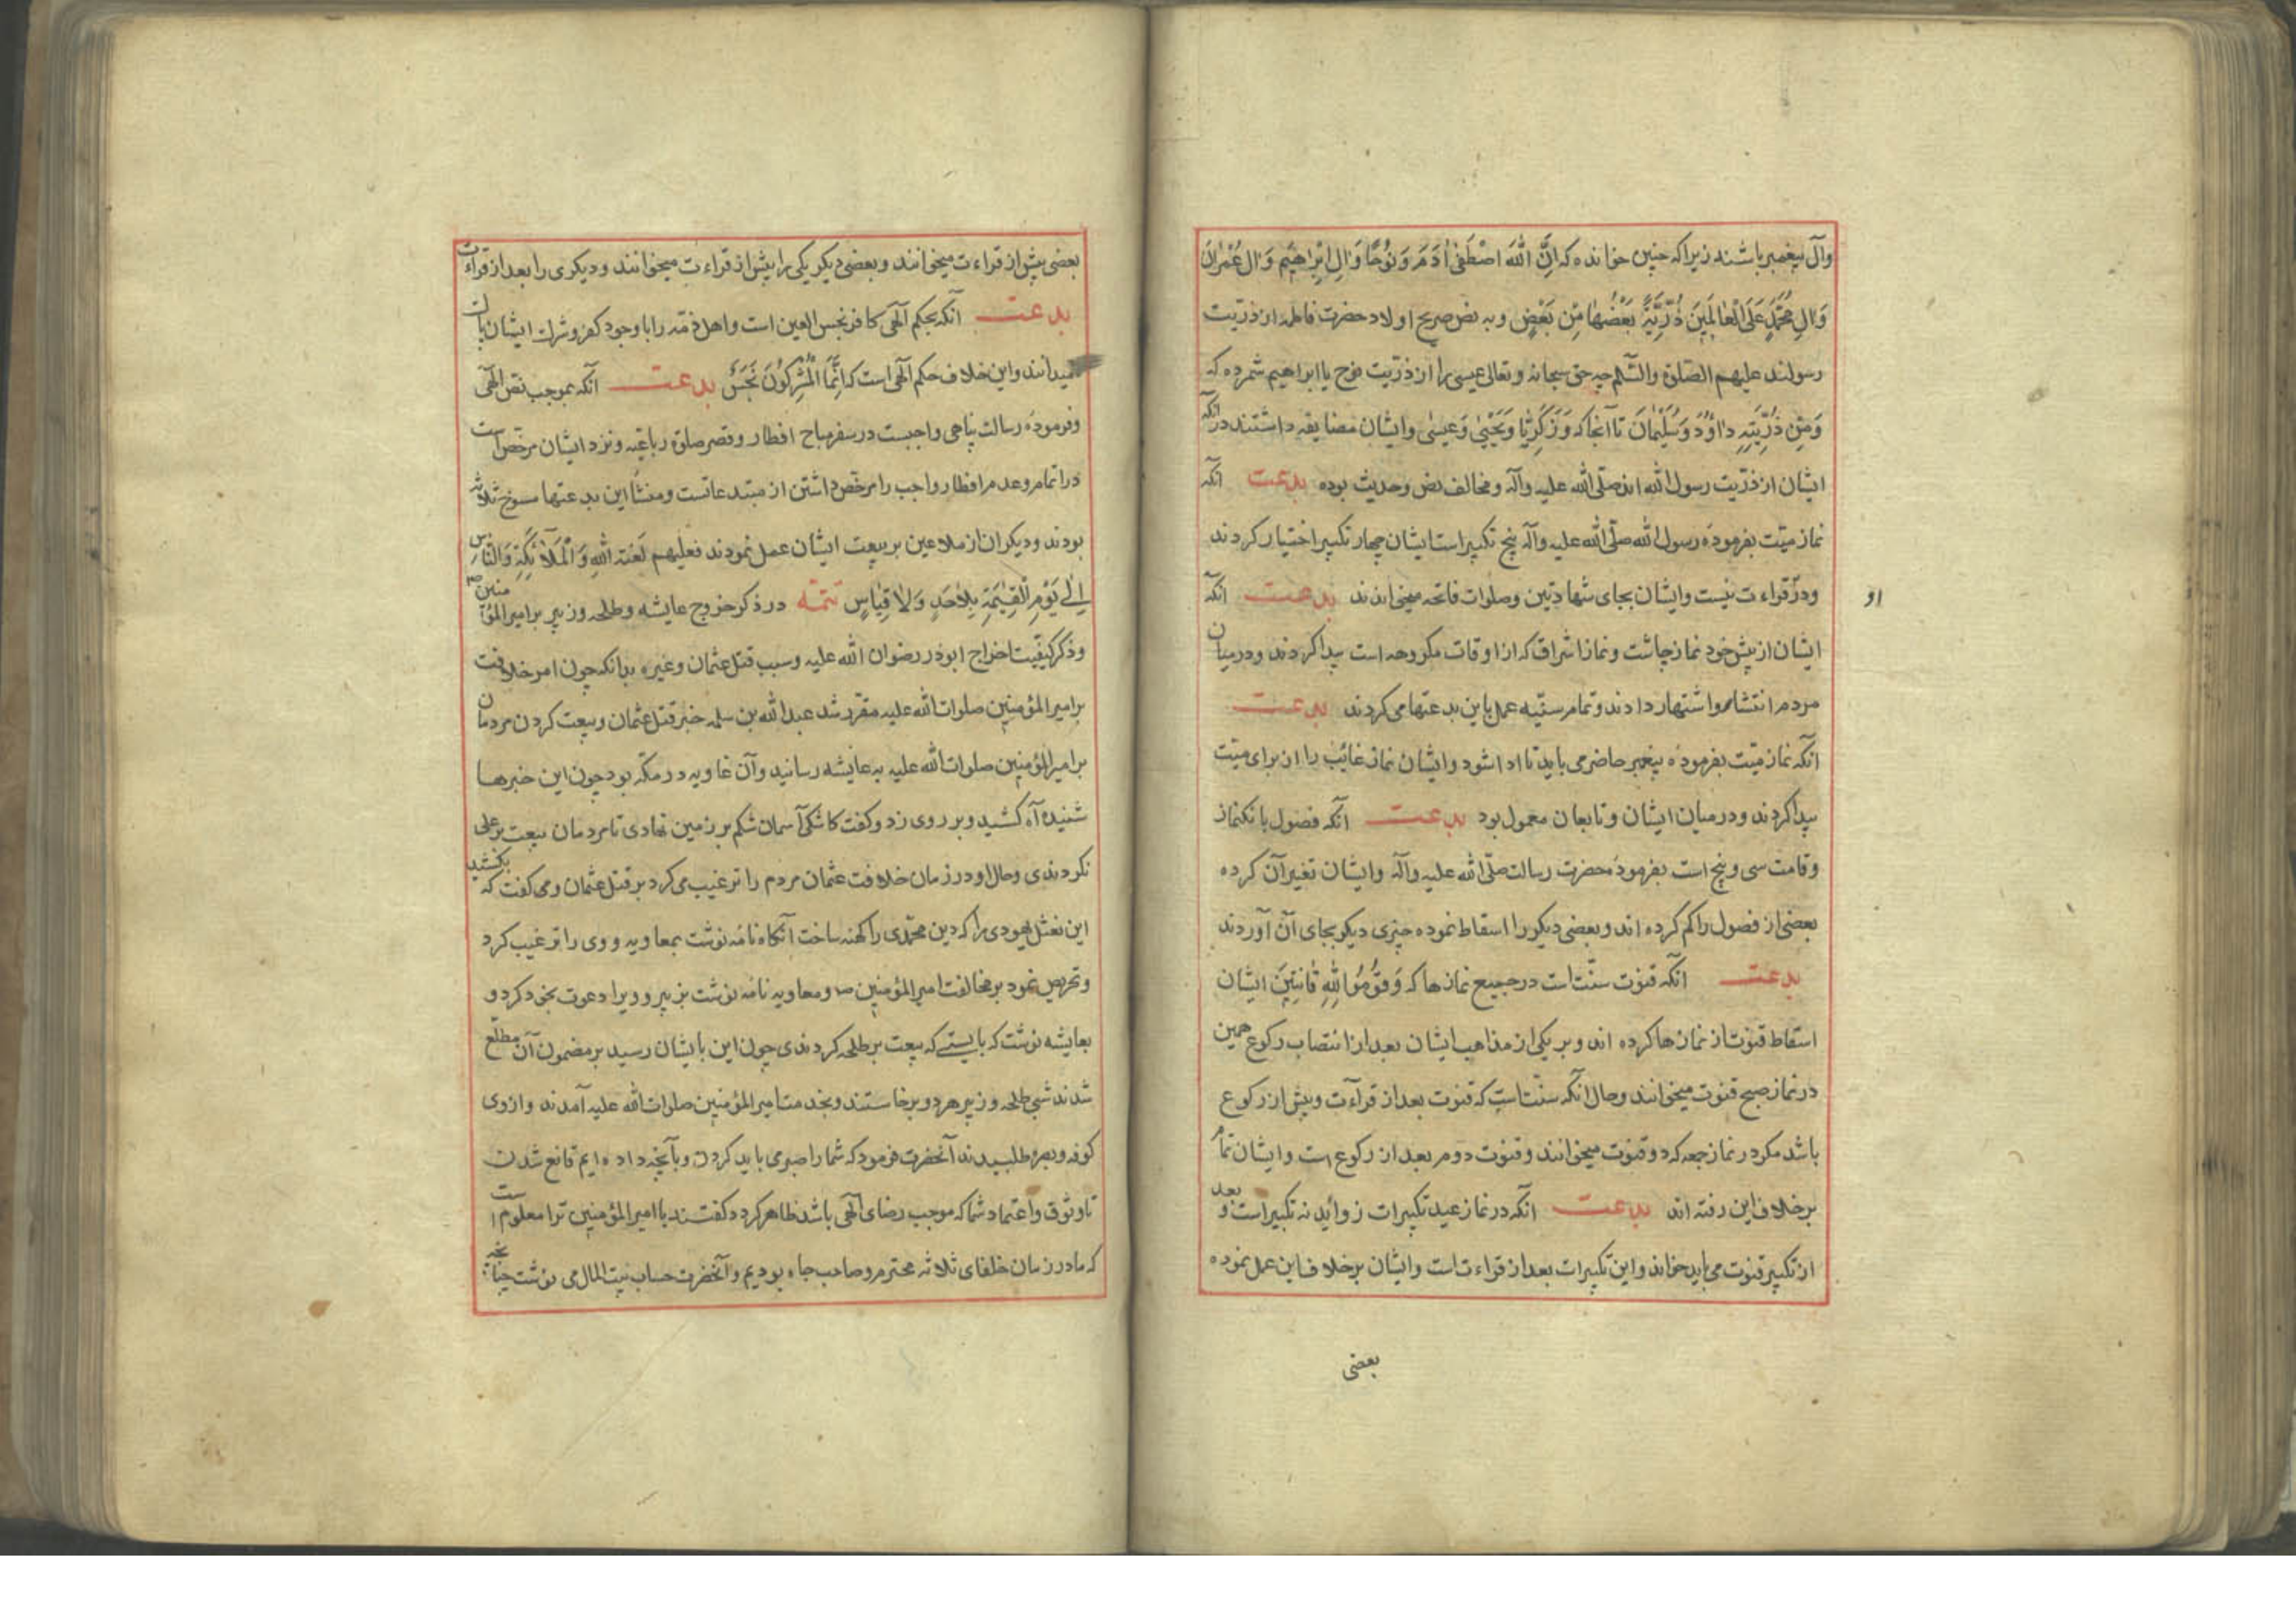 وآل پیغمبر باشند زیرا که چنین خوانده که اِنَّ اللّٰهَ اصْطَفٰی اٰدَمَ وَنُوحًا وَاٰلَ اِبْرٰاهِیمَ وَاٰلَ عِمْرٰانَ
وَاٰلِ مُحَمَّدٍ عَلَی الْعٰالَمِینَ ذُرِّیَّةً بَعْضُهٰا مِنْ بَعْضٍ وبه نص صریح اولاد حضرت فاطمه از ذرّیت
رسولند علیهم الصلوة والسّلم چه حق سبحانه وتعالی عیسی را از ذرّیت نوح یا ابراهیم شمرده که
وَمِنْ ذُرِّیَتِهِ دٰاوُدَ وَسُلَیْمٰانَ تا آنجا که وَزَکَرِیّٰا وَیَحْیٰی وَعیسٰی وایشان مضایقه داشتند در آنکه
ایشان از ذرّیت رسول الله اند صلّی الله علیه وآله ومخالف نص وحدیث بوده بدعت آنکه
نماز میّت بفرموده رسول الله صلّی الله علیه وآله پنج تکبیر است ایشان چهار تکبیر اختیار کردند
ودرو قراءت نیست وایشان بجای شهادتین وصلوات فاتحه میخواندند بدعت آنکه
او
ایشان از پیش خود نماز چاشت ونماز اشراق که از اوقات مکروهه است پیدا کردند ودر میان
مردم انتشار واشتهار دادند وتمام سنّیه عمل باین بدعتها می کردند بدعت
آنکه نماز میّت بفرموده پیغمبر حاضر می باید تا ادا شود وایشان نماز غائب را از برای میّت
پیدا کردند ودر میان ایشان وتابعان معمول بود بدعت آنکه فصول بانک نماز
وقامت سی وپنج است بفرموده حضرت رسالت صلّی الله علیه وآله وایشان تغیر آن کرده
بعضی از فصول را کم کرده اند وبعضی دیکر را اسقاط نموده چیزی دیکر بجای آن آوردند
بدعت آنکه قنوت سنّت است در جمیع نمازها که وَقُومُوا لِلّٰهِ قٰانِتِینَ ایشان
اسقاط قنوت از نمازها کرده اند وبر یکی از مذاهب ایشان بعد از انتصاب رکوع همین
در نماز صبح قنوت میخوانند وحال آنکه سنّت است که قنوت بعد از قرآءت وپیش از رکوع
باشد مکر در نماز جمعه که دو قنوت میخوانند وقنوت دوم بعد از رکوع است وایشان تمام
بر خلاف این رفته اند بدعت آنکه در نماز عید تکبیرات زوائد نه تکبیر است وبعد
از تکبیر قنوت می باید خواند واین تکبیرات بعد از قراءت است وایشان بر خلاف این عمل نموده
بعضی
بعضی پیش از قراءت میخوانند وبعضی دیکر یکی را پیش از قراءت میخوانند ودیکری را بعد از قراءت
بدعت آنکه بحکم آلهی کافر نجس العین است واهل ذمّه را با وجود کفر وشرک ایشان پاک
میدانند واین خلاف حکم آلهی است که اِنَّمَا الْمُشْرِکُونَ نَجَسٌ بدعت آنکه بموجب نصّ آلهی
وفرموده رسالت پناهی واجبست در سفر مباح افطار وقصر صلوة رباعیه ونزد ایشان مرخص است
در اتمام وعدم افطار واجب را مرخص داشتن از مبتدعاتست ومنشأ این بدعتها ثلاثه
بودند ودیکران از ملاعین بر بیعت ایشان عمل نمودند فعلیهم لَعْنَة اللهِ وَالْمَلاٰئِکَةِ وَالنّٰاسِ
اِلٰی یَوْمِ الْقِیٰمَةِ بِلاٰحَدٍ وَلاٰ قِیٰاسٍ تتمّه در ذکر خروج عایشه وطلحه وزبیر بر امیر المؤمنین ص
وذکر کیفیّت اخراج ابوذر رضوان الله علیه وسبب قتل عثمان وغیره بدانکه چون امر خلافت
بر امیر المؤمنین صلوات الله علیه مقرر شد عبد الله بن سلمه خبر قتل عثمان وبیعت کردن مردمان
بر امیر المؤمنین صلوات الله علیه به عایشه رسانید وآن غاویه در مکّه بود چون این خبرها
شنید آه کشید وبر روی زد وکفت کاشکی آسمان شکم بر زمین نهادی تا مردمان بیعت بر علی
نکردندی وحال او در زمان خلافت عثمان مردم را ترغیب می کرد بر قتل عثمان ومی کفت که بکشید
این نعثل یهودی را که دین محمّدی را کهنه ساخت آنکاه نامه نوشت بمعاویه ووی را ترغیب کرد
وتحریص نمود بر مخالفت امیر المؤمنین ص ومعاویه نامه نوشت بزبیر وویرا دعوت بخود کرد و
بعایشه نوشت که بایستی که بیعت بر طلحه کردندی چون این بایشان رسید بر مضمون آن مطلع
شدند شبی طلحه وزبیر هر دو برخاستند وبخدمت امیر المؤمنین صلوات الله علیه آمدند واز وی
کوفه وبصره طلبیدند آنحضرت فرمود که شما را صبر می باید کردن وبآنچه داده ایم قانع شدن
تا وثوق واعتماد شما که موجب رضای آلهی باشد ظاهر کردد کفتند یا امیر المؤمنین ترا معلوم است
که ما در زمان خلفای ثلاثه محترم وصاحب جاه بودیم وآنحضرت حساب بیت المال می نوشت چنانچه